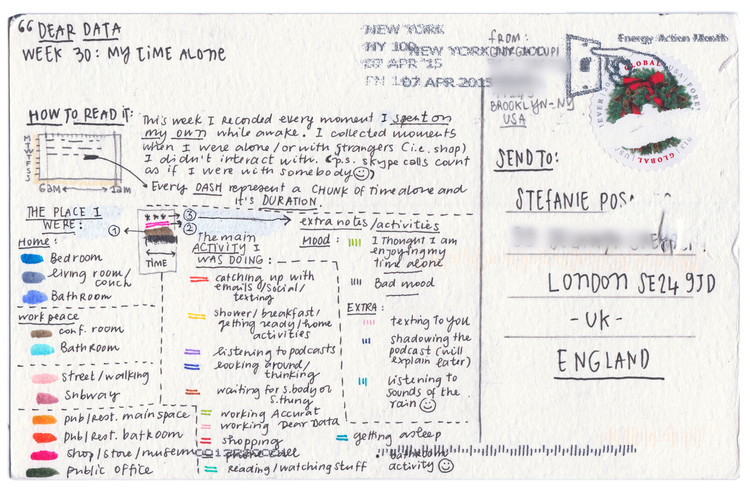 “ DEAR DATA
WEEK 30: MY TIME ALONE
HOW TO READ IT:
M
T
W
T
F
S
S
6am
1am
This week I recorded every moment I spent on
my own while awake. I collected moments
when I were alone/or with strangers (i.e. shop)
I didn't interact with. (p.s. skype calls count
as if I were with somebody)
Every DASH represent a CHUNK of time alone and
it's DURATION.
THE PLACE I
WERE:
1
3
2
TIME
Home:
Bedroom
living room/
couch
Bathroom
work peace
conf. room
Bathroom
street/walking
Subway
pub/rest. main space
pub/rest. bathroom
shop/store/museum
public office
The main
ACTIVITY I
WAS DOING:
catching up with
emails/social/
texting
shower/breakfast/
getting ready/home
activities
listening to podcasts
looking around/
thinking
waiting for s.body or
s.thing
working Accurat
working Dear Data
shopping
phone call
reading/watching stuff
extra notes/activities
MOOD:
I thought I am
enjoying my
time alone
Bad mood
EXTRA:
texting to you
shadowing the
podcast (will
explain later)
listening to
sounds of the
rain
getting asleep
bathroom
activity
NEW YORK
NY 100
NEW YORK NY 100
07 APR 2015
FROM:
BROOKLYN-NY
USA
Energy Action Month
GLOBAL
USA
FOREVER
GLOBAL
SEND TO:
STEFANIE POS
LONDON SE24 9JD
-UK-
ENGLAND